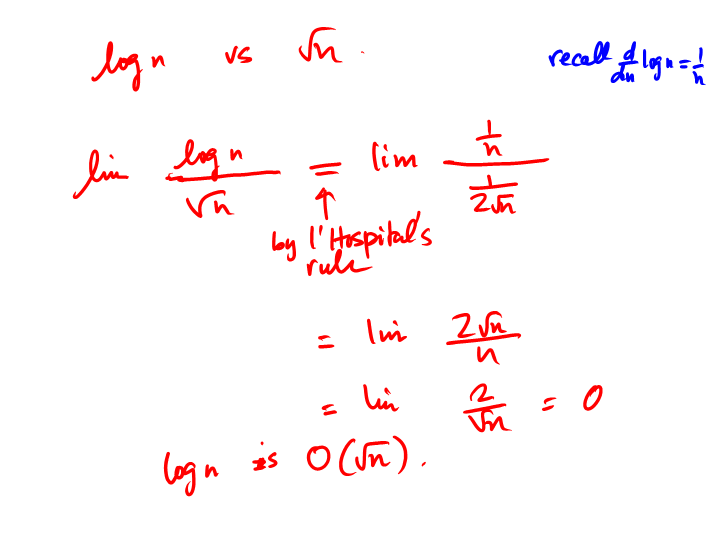 log n vs √n.
recall d/dn log n = 1/n
lim (log n)/(√n) = lim (1/n)/(1/(2√n))
↑
by l'Hospital's
rule
= lim (2√n)/n
= lim 2/√n = 0
log n is O(√n).